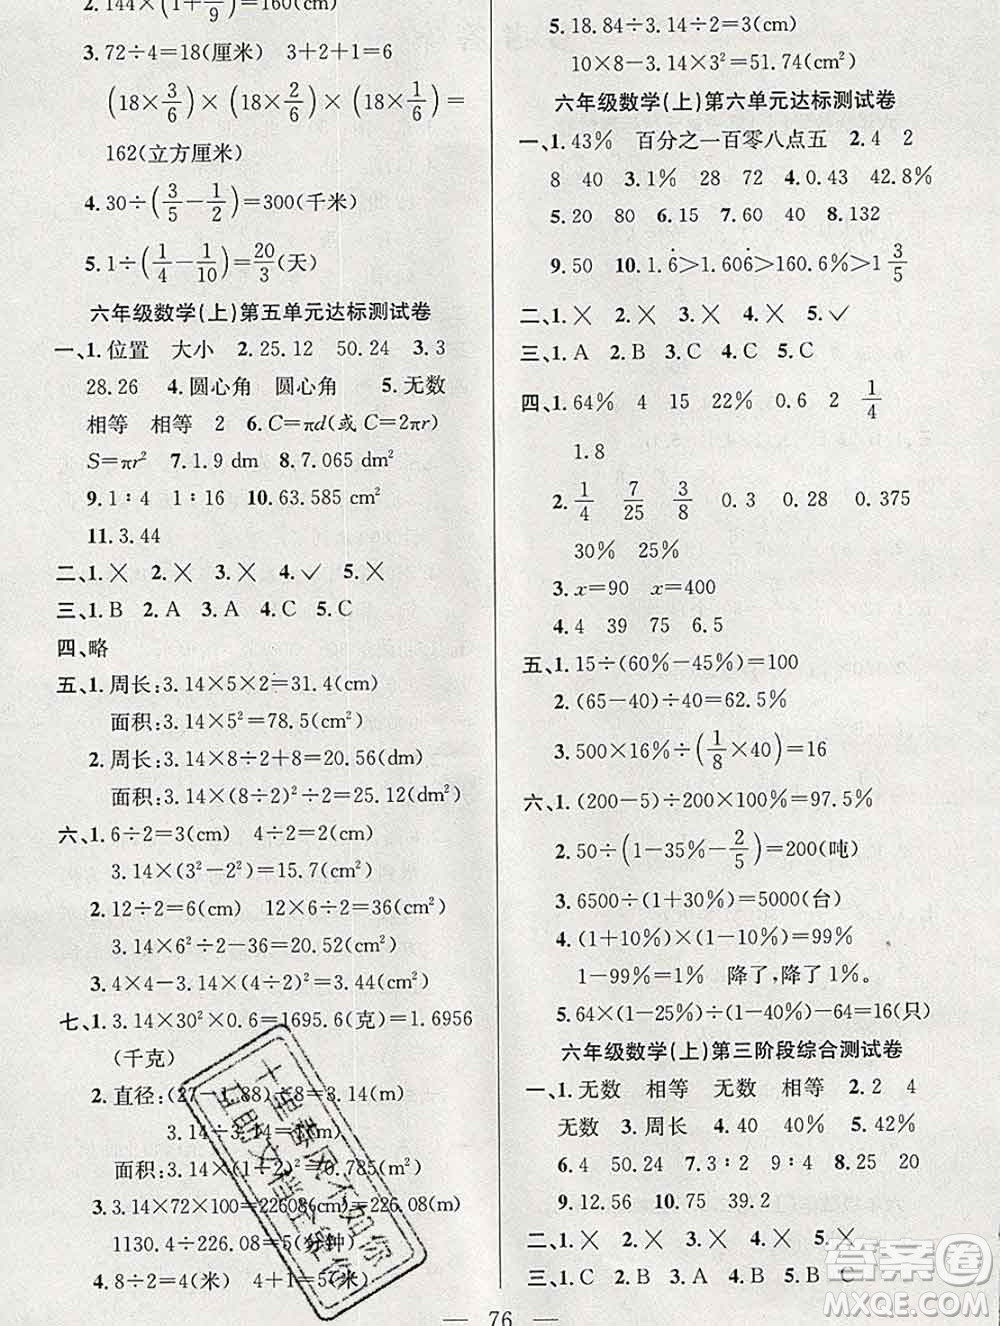 144×(1+1/9)=160(cm)
3. 72÷4=18(厘米)  3+2+1=6
(18×3/6)×(18×2/6)×(18×1/6)=
162(立方厘米)
4. 30÷(3/5-1/2)=300(千米)
5. 1÷(1/4-1/10)=20/3(天)
六年级数学(上)第五单元达标测试卷
一、1. 位置  大小  2. 25.12  50.24  3. 3
28.26  4. 圆心角  圆心角  5. 无数
相等  相等  2  6. C=πd(或 C=2πr)
S=πr²  7. 1.9 dm  8. 7.065 dm²
9. 1∶4  1∶16  10. 63.585 cm²
11. 3.44
二、1. ×  2. ×  3. ×  4. ✓  5. ×
三、1. B  2. A  3. A  4. C  5. C
四、略
五、1. 周长:3.14×5×2=31.4(cm)
面积:3.14×5²=78.5(cm²)
2. 周长:3.14×8÷2+8=20.56(dm)
面积:3.14×(8÷2)²÷2=25.12(dm²)
六、1. 6÷2=3(cm)  4÷2=2(cm)
3.14×(3²-2²)=15.7(cm²)
2. 12÷2=6(cm)  12×6÷2=36(cm²)
3.14×6²÷2-36=20.52(cm²)
3. 4×4-3.14×(4÷2)²=3.44(cm²)
七、1. 3.14×30²×0.6=1695.6(克)=1.6956
(千克)
2. 直径:(27-1.88)÷8=3.14(m)
3.14÷3.14=1(m)
面积:3.14×(1÷2)²=0.785(m²)
3. 3.14×72×100=22608(cm)=226.08(m)
1130.4÷226.08=5(分钟)
4. 8÷2=4(米)  4+1=5(米)
5. 18.84÷3.14÷2=3(cm)
10×8-3.14×3²=51.74(cm²)
六年级数学(上)第六单元达标测试卷
一、1. 43%  百分之一百零八点五  2. 4  2
8  40  3. 1%  28  72  4. 0.43  42.8%
5. 20  80  6. 25  7. 60  40  8. 132
9. 50  10. 1.6̇>1.606̇>166%>1 3/5
二、1. ×  2. ×  3. ×  4. ×  5. ✓
三、1. A  2. B  3. C  4. C  5. C
四、1. 64%  4  15  22%  0.6  2  1/4
1.8
2. 1/4  7/25  3/8  0.3  0.28  0.375
30%  25%
3. x=90  x=400
4. 4  39  75  6.5
五、1. 15÷(60%-45%)=100
2. (65-40)÷40=62.5%
3. 500×16%÷(1/8×40)=16
六、1. (200-5)÷200×100%=97.5%
2. 50÷(1-35%-2/5)=200(吨)
3. 6500÷(1+30%)=5000(台)
4. (1+10%)×(1-10%)=99%
1-99%=1%  降了,降了 1%。
5. 64×(1-20%)÷64%-64=16(只)
六年级数学(上)第三阶段综合测试卷
一、1. 无数  相等  无数  相等  2. 2  4
无数  3. 周长  4. 40  40%  5. 20%
6. 4  50.24  7. 3∶2  9∶4  8. 25  20
9. 12.56  10. 75  39.2
二、1. ×  2. ×  3. ×  4. ×  5. ×
三、1. C  2. A  3. B  4. C  5. B  C
— 76 —
十里春风不如你
互助文档全靠你
答案圈
MXQE.COM